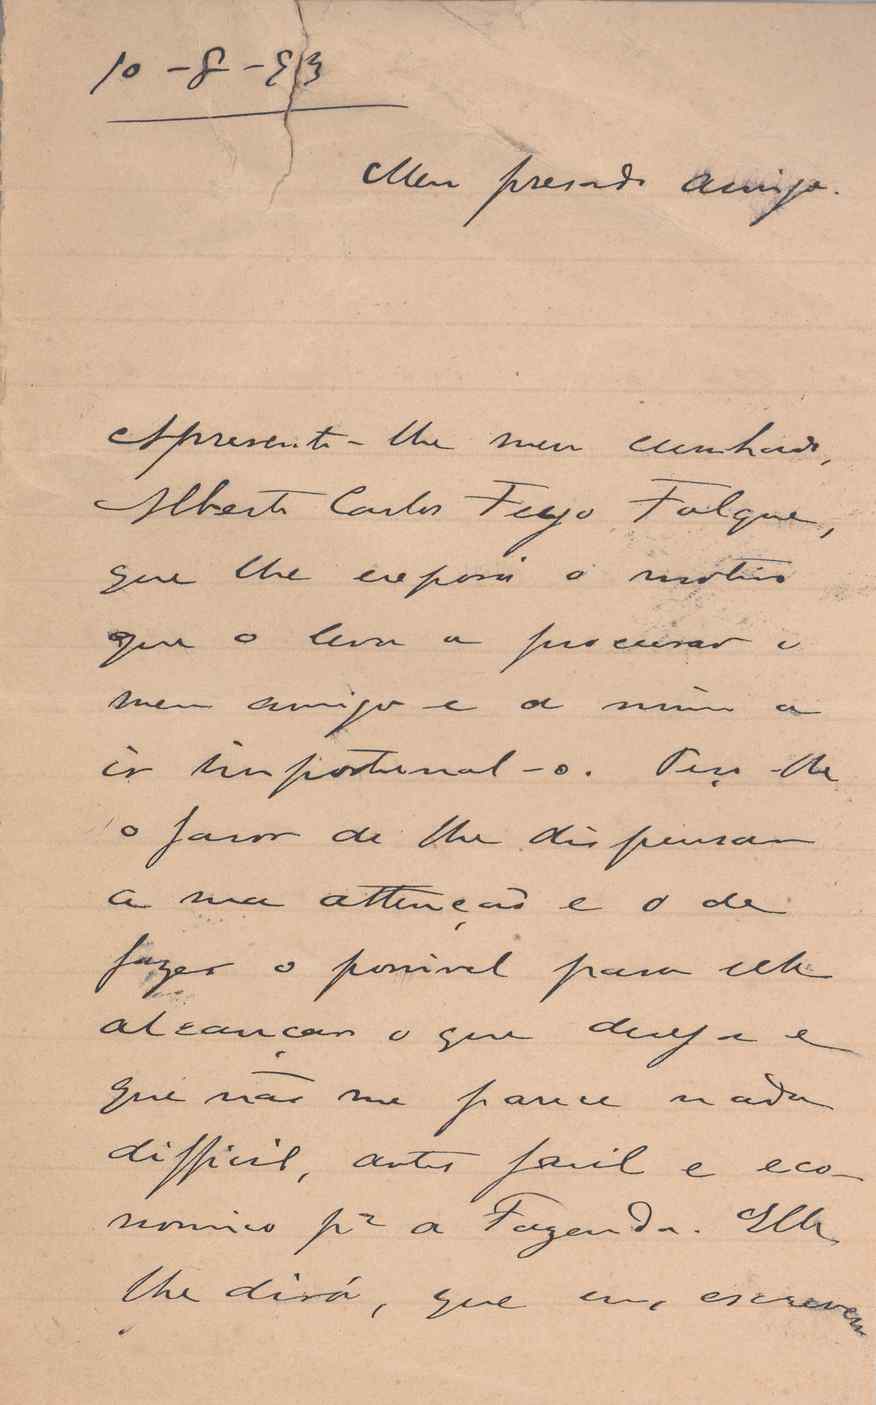 10-8-93
Meu presado amigo.
Apresento-lhe meu cunhado,
Alberto Carlos Feyo Folque,
que lhe exporá o motivo
que o leva a procurar o
meu amigo e a mim a
ir importunal-o. Peço-lhe
o favor de lhe dispensar
a sua attenção e o de
fazer o possivel para elle
alcançar o que deseja e
que não me parece nada
difficil, antes facil e eco-
nomico pª a Fazenda. Elle
lhe dirá, que eu, escrevem